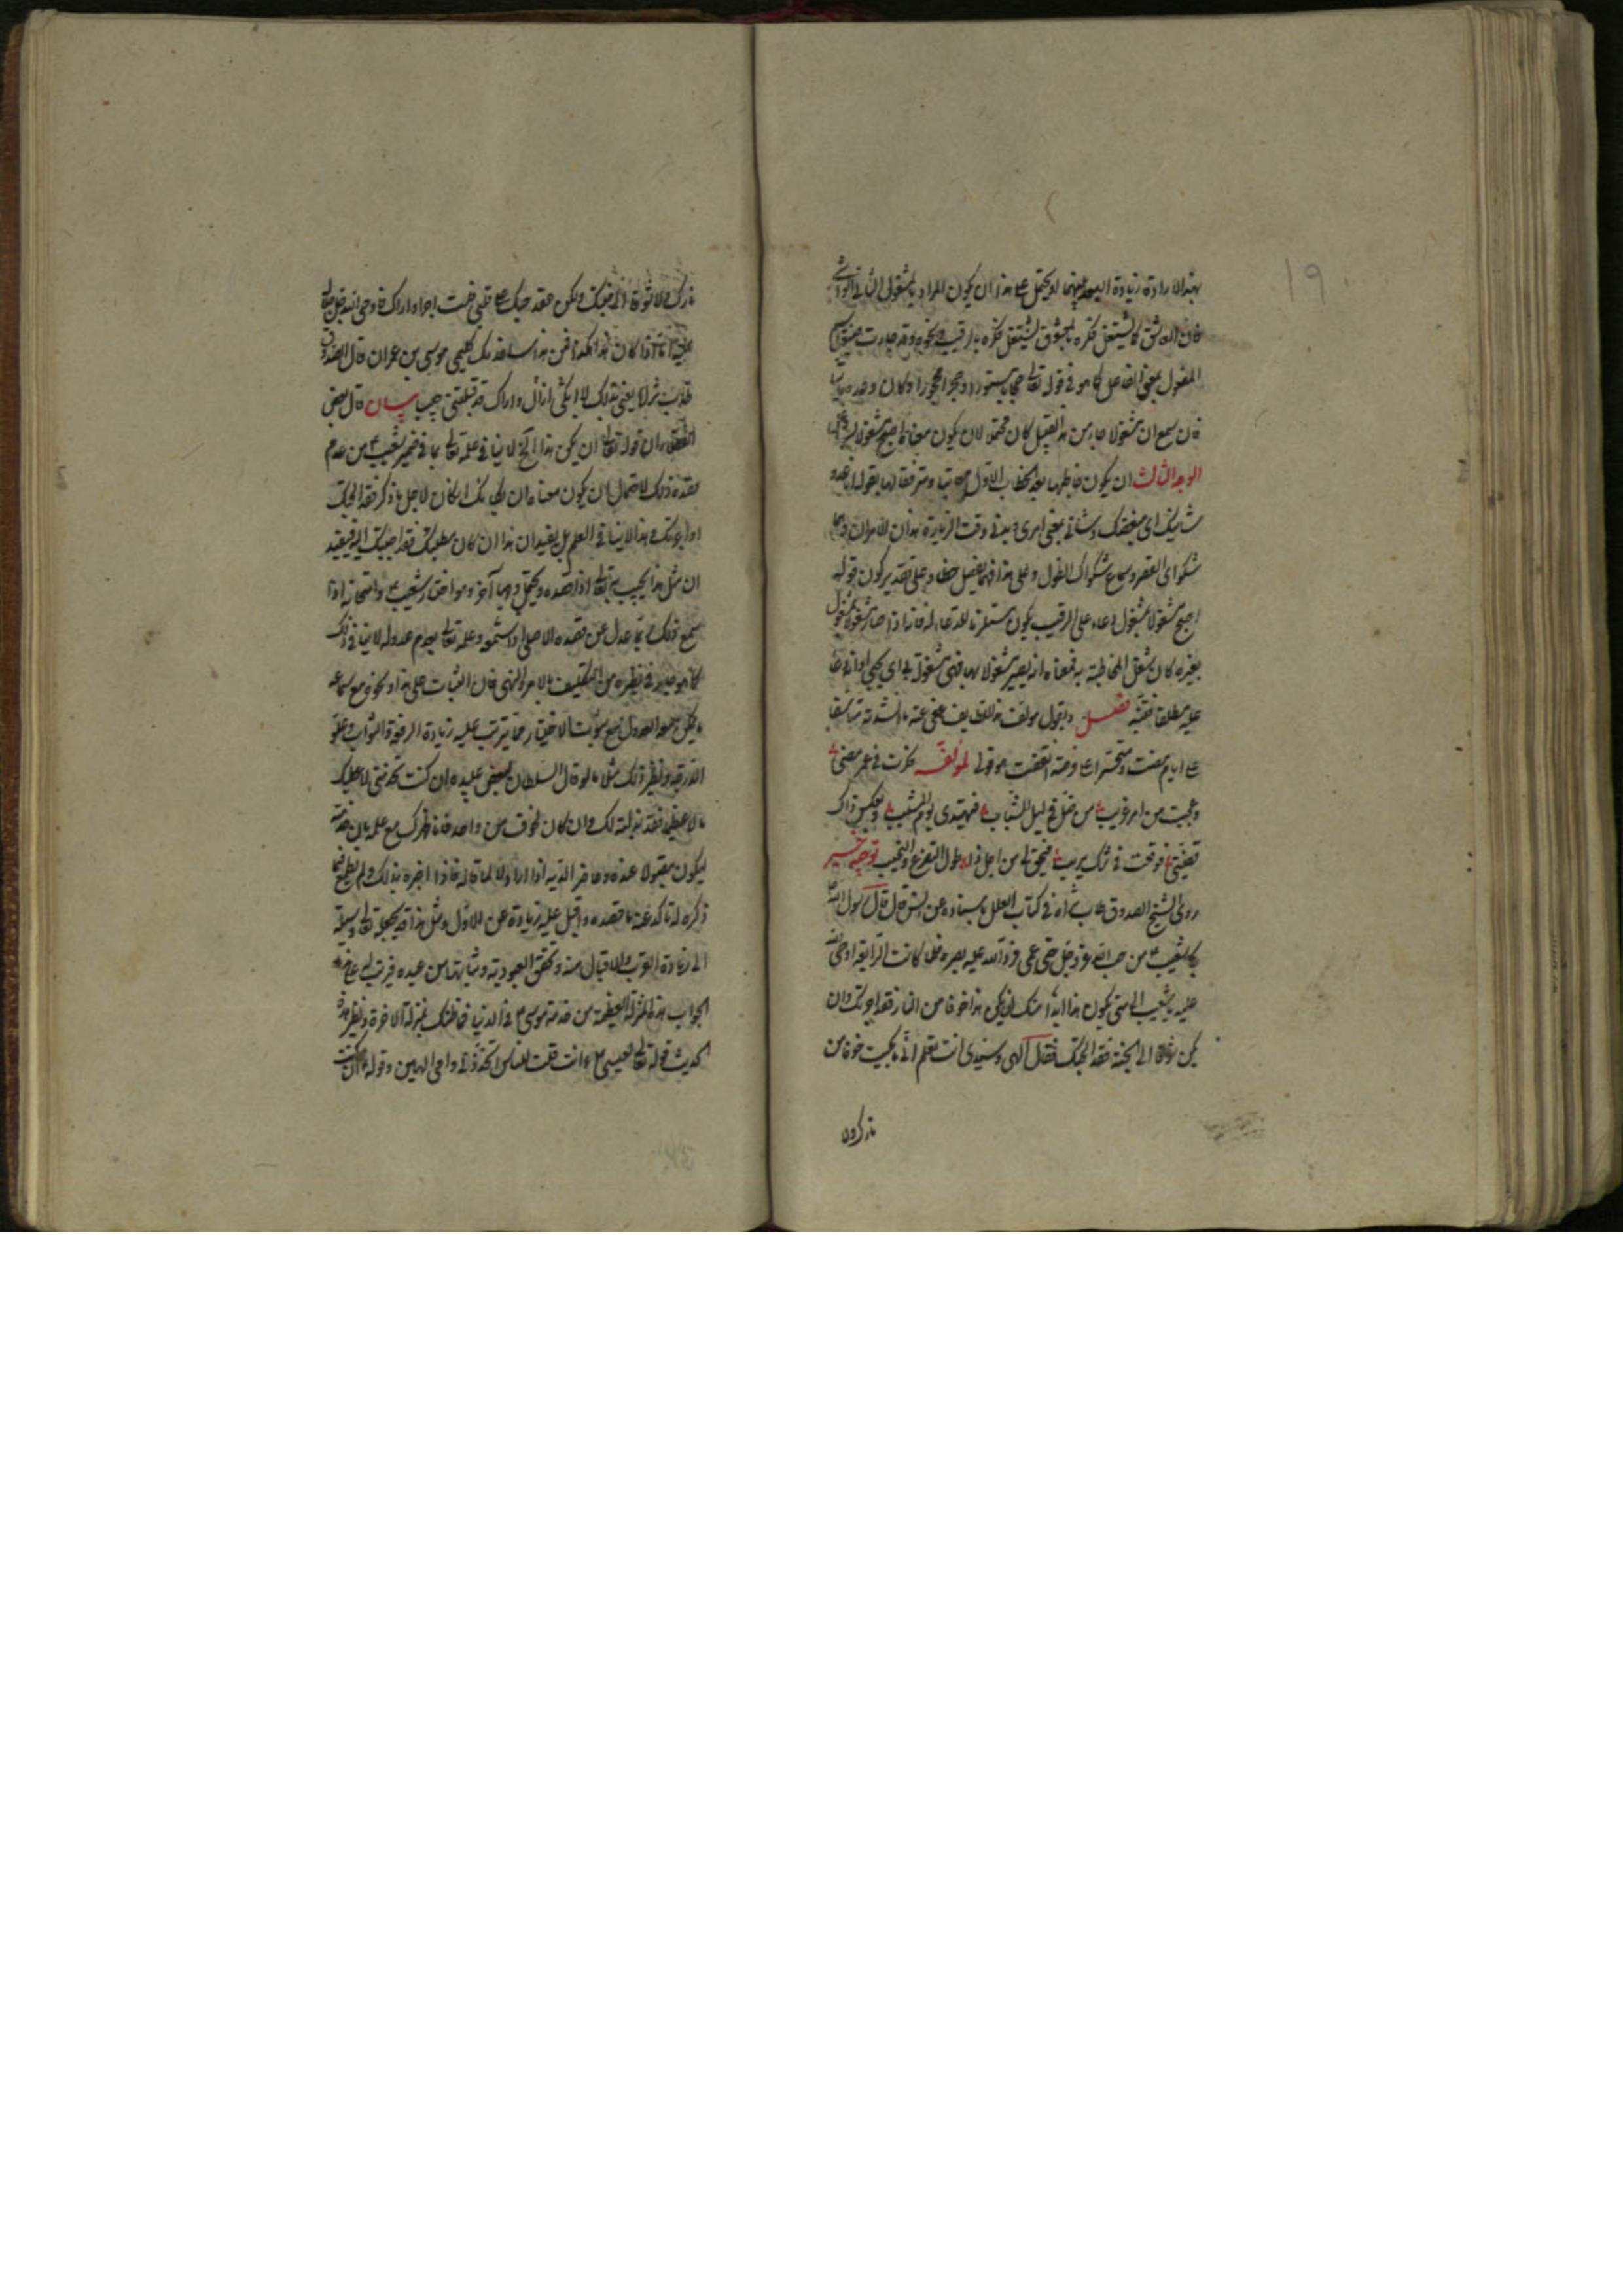 ١٩
بهذا الارادة زيادة البعد بينهما او يحتمل على هذا ان يكون المراد بالمشغول الثاني الواشي
فان العاشق كما يشتغل فكره بالمعشوق يشتغل فكره بالرقيب ونحوه وقد صارت صيغة اسم
المفعول بمعنى الفاعل كما هو في قوله تعالى حجابا مستورا او حجرا محجورا وكان وعده ماتيا
فان سمع ان مشغولا جاء من هذا القبيل كان محتملا لان يكون معناه اصبح مشغولا
الوجه الثالث ان يكون خاطبها بعد الخطاب الاول ومترفقا لها بقوله انا فدو
شانيك اي مبغضك وشاني بمعنى امري وبيني وقت الزيارة هذان الامران وهما
شكواي القصر وسماع شكواك الطول وعلى هذا فهما يفصل حظا وعلى تقدير كون قوله
اصبح مشغولا بمشغول دعاء على الرقيب يكون مستلزما للدعاء له فانه اذا صار مشغولا بمشغول
بغيره كان شغل المخاطبة به فمعناه انه يصير مشغولا بها فهي مشغولة بي اي بحبي او انه دعا
عليه مطلقا فتنبه فصل واقول مؤلف هذا عفي عنه ما انشدته متاسفا
على ايام مضت ومتحسرا على فرصة انقضت هو قولي لمؤلفه فكرت في عمر مضى
وعجبت من امر غريب من ضل في ليل الشباب فيهتدي يوم المشيب وبعكس ذاك
قضيتي فوقعت في شك مريب فيحق لي من اجل ذا طول التضرع والنحيب توجيه خبر
روى الشيخ الصدوق طاب ثراه في كتاب العلل باسناده عن انس قال قال رسول الله ص
بكى شعيب ع من حب الله عز وجل حتى عمي فرد الله عليه بصره فلما كانت الرابعة اوحى الله
عليه يا شعيب الى متى يكون هذا ابدا منك ان يكن هذا خوفا من النار فقد اجرتك وان
يكن شوقا الى الجنة فقد ابحتك فقال الهي وسيدي انت تعلم اني ما بكيت خوفا من
نارك ولا
نارك ولا شوقا الى جنتك ولكن عقد حبك على قلبي فلست اصبر او اراك فاوحى الله جل جلاله
عليه اما اذا كان هذا هكذا فمن هذا ساخدمك كليمي موسى بن عمران قال الصدوق
طاب ثراه يعني بذلك لا ازال ابكي او اراك قد قبلتني حبيبا بيان قال بعض
الفضلاء ان قوله تعالى ان يكن هذا الخ لا ينافي علمه تعالى بما في ضمير شعيب ع من عدم
قصده ذلك لاحتمال ان يكون معناه ان بكاءك ان كان لاجل ما ذكر فقد ابحتك
او اجرتك وهذا لا ينافي العلم بل يفيد ان هذا ان كان مطلبك فقد اجبتك اليه فيفيد
ان مثل هذا يجيب تعالى اذا قصده ويحتمل وجها آخر وهو اختبار شعيب ع وامتحانه اذا
سمع ذلك ربما عدل عن قصده الاصلي او استمر وعلمه تعالى بعدم عدوله لا ينافي ذلك
كما هو في نظيره من التكليف بالامر والنهي فان الثبات على هذا ونحوه مع سماعه
يمكن معه العدول مع ثبوت الاختيار مما يترتب عليه زيادة الرفعة والثواب وعلو
الدرجة ونظير ذلك مثلا ما لو قال السلطان لبعض عبيده ان كنت تخدمني لاعطيك
مالا عظيما فقد بذلته لك وان كان لخوف من واحد فانا اجيرك مع علمه بان خدمته
ليكون مقبولا عنده وحاضرا لديه اذا اراد لا لما قاله فاذا اخبره بذلك ولم يطمع فيما
ذكره له تاكد عنده ما قصده واقبل عليه زيادة عن الاول ومثل هذا قد يجعله تعالى وسيلة
الى زيادة القرب والاقبال منه وتحقق العبودية وشانها من عبده فرتب له على هذا
الجواب هذه المنزلة العظيمة من خدمة موسى ع في الدنيا فما ظنك بمنزلة الآخرة ونظير هذا
الحديث قوله تعالى لعيسى ع ءانت قلت للناس اتخذوني وامي الهين وقوله ان كنت